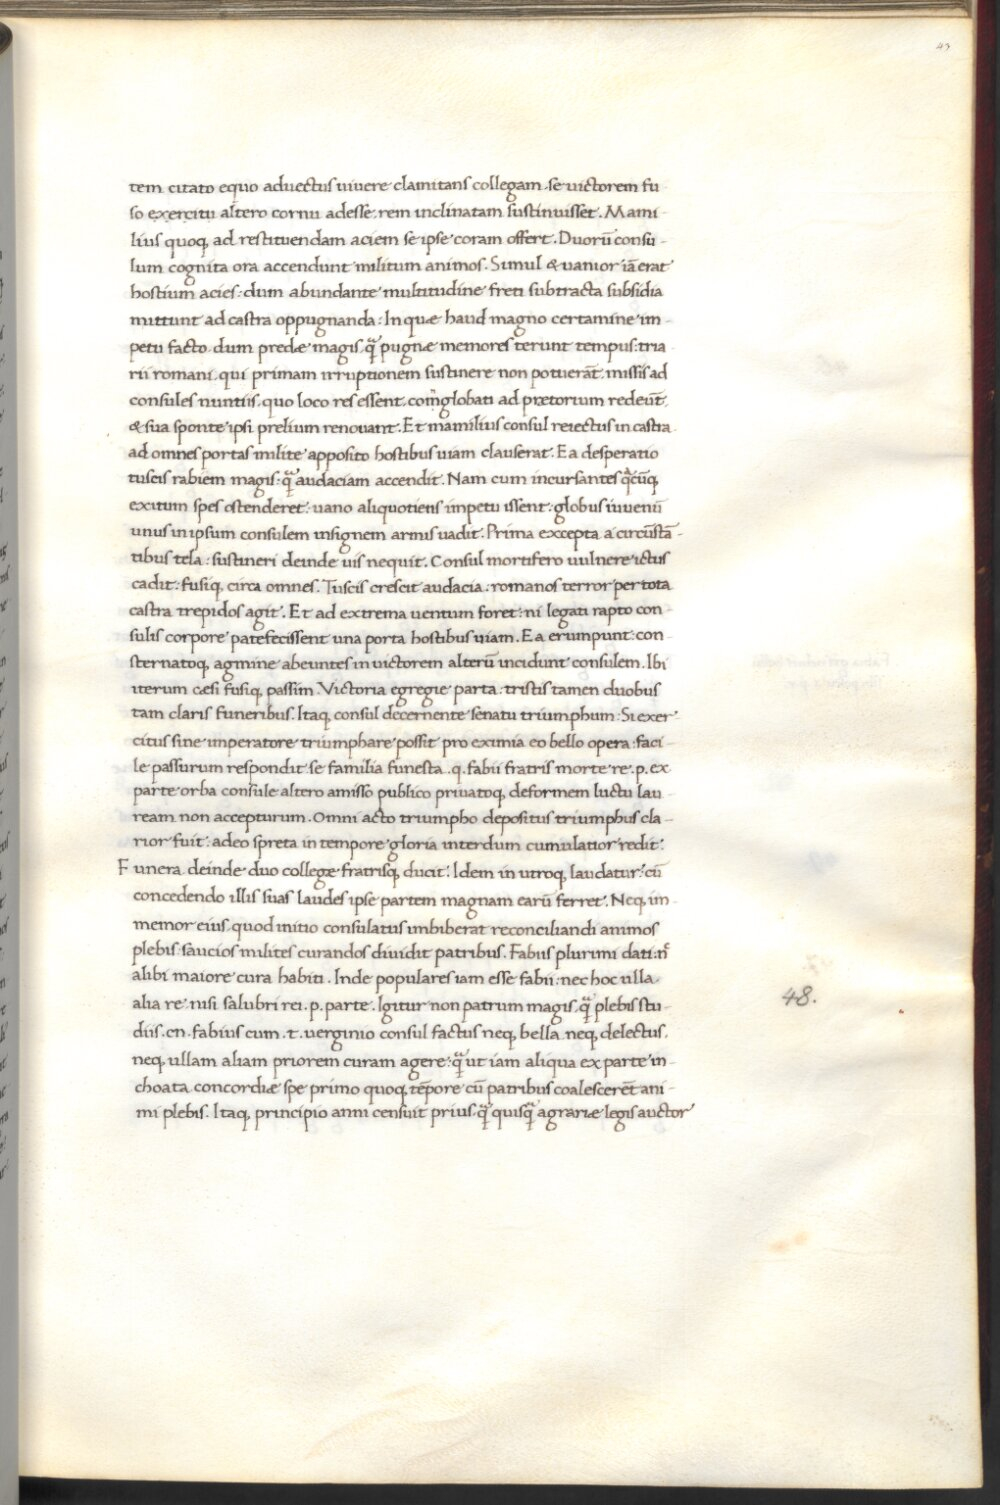 43
tem citato equo aduectus uiuere clamitans collegam. se uictorem fu
so exercitu altero cornu adesse. rem inclinatam sustinuisset. Mami-
lius quoq, ad restituendam aciem se ipse coram offert. Duorū consu-
lum cognita ora accendunt militum animos. Simul & uanior iā erat
hostium acies: dum abundante multitudine freti subtracta subsidia
mittunt ad castra oppugnanda: In quæ haud magno certamine im-
petu facto dum predæ magis. q̄ pugnæ memores terunt tempus: tria
rii romani. qui primam irruptionem sustinere non potuerāt. missis ad
consules nuntiis. quo loco res essent. conglobati ad prætorium redeūt.
& sua sponte ipsi prelium renouant. Et mamilius consul reiectus in castra
ad omnes portas milite apposito hostibus uiam clauserat. Ea desperatio
tuscis rabiem magis: q̄ audaciam accendit. Nam cum incursantes q̄cūq,
exitum spes ostenderet: uano aliquotiens impetu issent: globus iuuenū
unus in ipsum consulem insignem armis uadit. Prima excepta a circūstā-
tibus tela: sustineri deinde uis nequit. Consul mortifero uulnere ictus
cadit: fusiq, circa omnes. Tuscis crescit audacia. romanos terror per tota
castra trepidos agit. Et ad extrema uentum foret: ni legati rapto con-
sulis corpore patefecissent una porta hostibus uiam. Ea erumpunt: con-
sternatoq, agmine abeuntes in uictorem alterū incidunt consulem. Ibi
iterum cæsi fusiq, passim. Victoria egregie parta: tristis tamen duobus
tam claris funeribus. Itaq, consul decernente senatu triumphum: Si exer
citus sine imperatore triumphare possit pro eximia eo bello opera: faci-
le passurum respondit se familia funesta. q. fabii fratris morte re. p. ex
parte orba consule altero amisso publico priuatoq, deformem luctu lau-
ream non accepturum. Omni acto triumpho depositus triumphus cla-
rior fuit: adeo spreta in tempore gloria interdum cumulatior redit:
Funera deinde duo collegæ fratrisq, ducit. Idem in utroq, laudatur: cū
concedendo illis suas laudes ipse partem magnam earū ferret. Neq, im-
memor eius. quod initio consulatus imbiberat reconciliandi animos
plebis: saucios milites curandos diuidit patribus. Fabiis plurimi dati: n̄c
alibi maiore cura habiti. Inde populares iam esse fabii: nec hoc ulla
alia re nisi salubri rei. p. parte. Igitur non patrum magis. q̄ plebis stu-
diis. cn. fabius cum. t. uerginio consul factus neq, bella neq, delectus.
neq, ullam aliam priorem curam agere: q̄ ut iam aliqua ex parte in-
choata concordiæ spe primo quoq, tēpore cū patribus coalescerēt ani-
mi plebis. Itaq, principio anni censuit prius. q̄ quisq̄ agrariæ legis auctor
48.